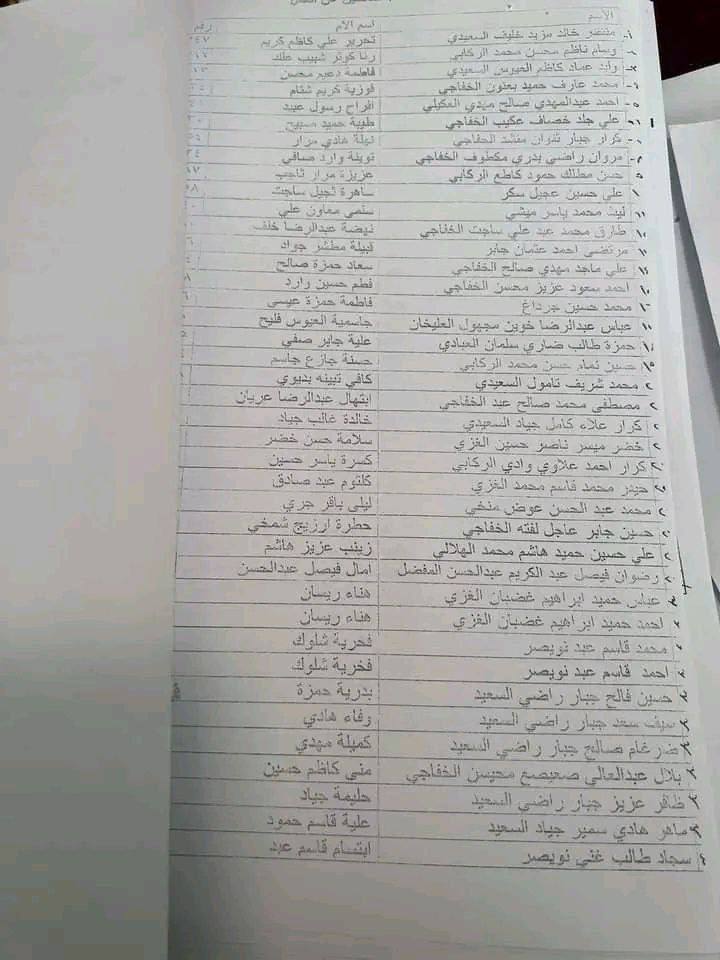 الاسم اسم الأم رقم
منتصر خالد مزيد خليف السعيدي تحرير علي كاظم كريم
وسام ناظم محسن محمد الركابي رنا كوثر شهيب علك
عماد كاظم العيوس السعيدي فاطمة دعيم محسن
محمد عارف حميد بعنون الخفاجي فوزية كريم شنام
احمد عبدالمهدي صالح مهدي العكيلي افراح رسول عبيد
علي جلد خصاف عكيب الخفاجي طيبة حميد مسيح
كرار جبار ثنوان منشد الخفاجي نبيلة هادي مرار
مروان راضي بدري مكطوف الخفاجي نويلة وارد صافي
حسن مطلك حمود كاطع الركابي عزيزة مرار
علي حسين عجيل سكر ساهرة ثجيل ساجت
ليث محمد ياسر ميشي سلمى معاون علي
طارق محمد عبد علي ساجت الخفاجي نيضة عبدالرضا خلف
مرتضى احمد عثمان جابر قبيلة مطشر جواد
علي ماجد مهدي صالح الخفاجي سعاد حمزة صالح
احمد سعود عزيز محسن الخفاجي فطم حسين وارد
محمد حسين جرداغ فاطمة حمزة عيسى
عباس عبدالرضا خوين مجهول العليخان جاسمية العيوس فليح
حمزة طالب ضاري سلمان العبادي علية جابر صفي
حسين تمام حسن محمد الركابي حسنة جازع جاسم
محمد شريف نامول السعيدي كافي تبينه بديوي
مصطفى محمد صالح عبد الخفاجي ابتهال عبدالرضا عريان
كرار علاء كامل جياد السعيدي خالدة غالب جياد
خضر ميسر ناصر حسين الغزي سلامة حسن خضر
كرار احمد علاوي وادي الركابي كسرة ياسر حسين
حيدر محمد قاسم محمد الغزي كلثوم عبد صادق
محمد عبد الحسن عوض منخي ليلى باقر جري
حسين جابر عاجل لفته الخفاجي حطرة ارزيج شمخي
علي حسين حميد هاشم محمد الهلالي زينب عزيز هاشم
رضوان فيصل عبد الكريم عبدالحسن المفضل امال فيصل عبدالحسن
عباس حميد ابراهيم غضبان الغزي هناء ريسان
احمد حميد ابراهيم غضبان الغزي هناء ريسان
محمد قاسم عبد نويصر فخرية شلوك
احمد قاسم عبد نويصر فخرية شلوك
حسين فالح جبار راضي السعيد بدرية حمزة
سيف سعد جبار راضي السعيد وفاء هادي
ضرغام صالح جبار راضي السعيد كميلة مهدي
بلال عبدالعالي صعيصع محيسن الخفاجي منى كاظم حسين
ظافر عزيز جبار راضي السعيد حليمة جياد
ماهر هادي سمير جياد السعيد علية قاسم حمود
سجاد طالب غني نويصر ابتسام قاسم عبد